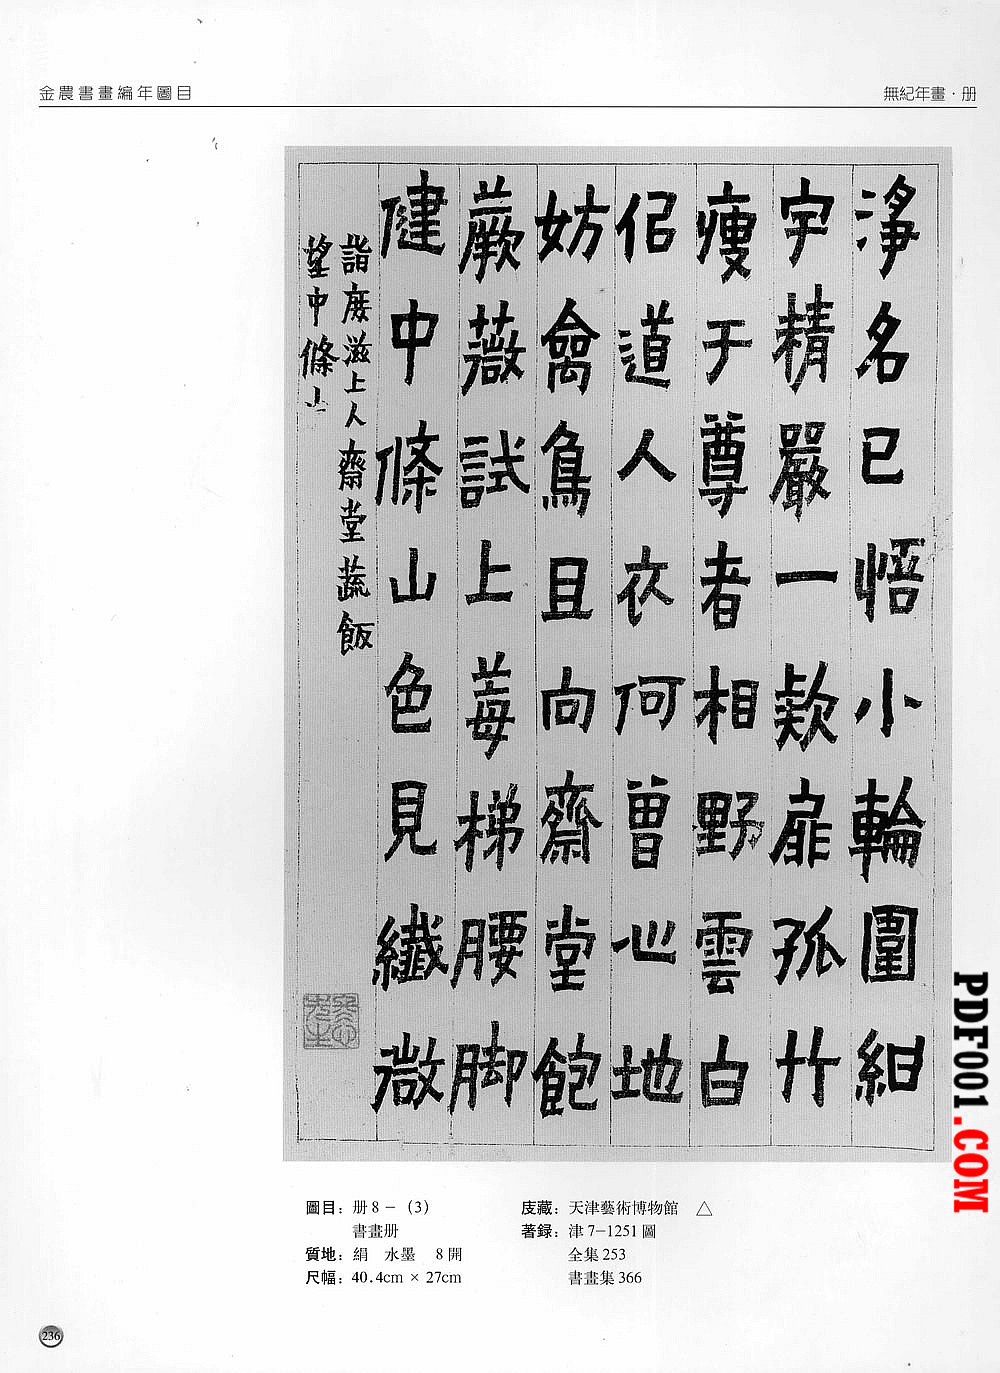 金農書畫編年圖目
無紀年畫·册
淨名已悟小輪圍紺
宇精嚴一欵扉孤竹
瘦于尊者相野雲白
侣道人衣何曾心地
妨禽鳥且向齋堂飽
蕨薇試上莓梯腰脚
健中條山色見纖微
詣度滋上人齋堂蔬飯
望中條山
圖目：册8－（3）
書畫册
質地：絹　水墨　8開
尺幅：40.4cm × 27cm
庋藏：天津藝術博物館　△
著録：津7－1251圖
全集253
書畫集366
236
PDF001.COM